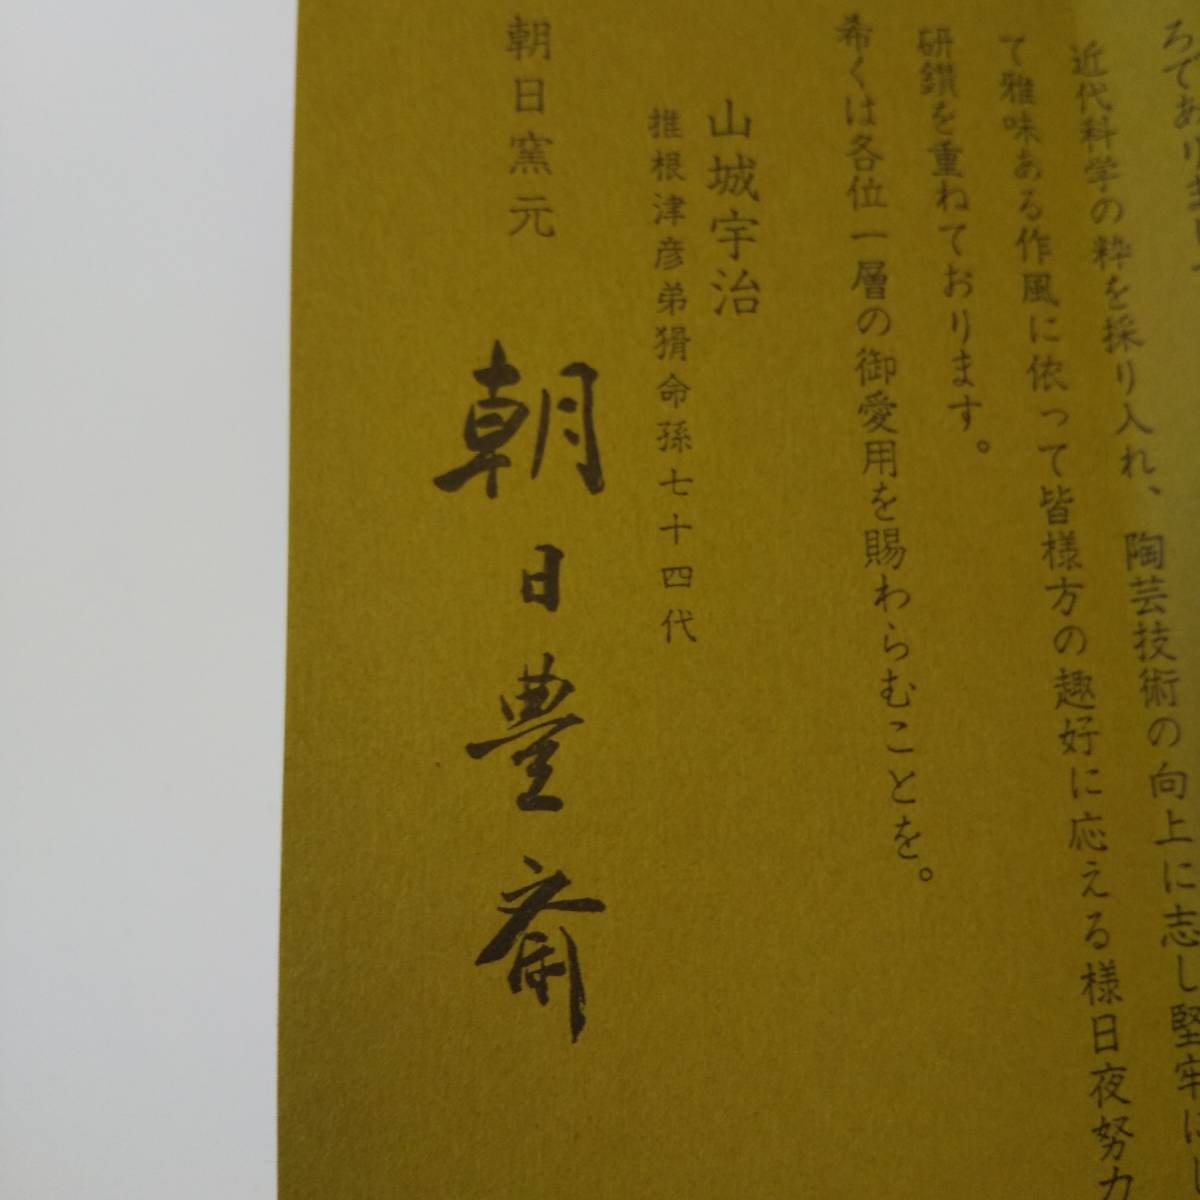 近代科学の粋を採り入れ、陶芸技術の向上に志し堅牢に
て雅味ある作風に依って皆様方の趣好に応える様日夜努力
研鑽を重ねております。
希くは各位一層の御愛用を賜わらむことを。
山城宇治
推根津彦弟猾命孫七十四代
朝日窯元 朝日豊斎